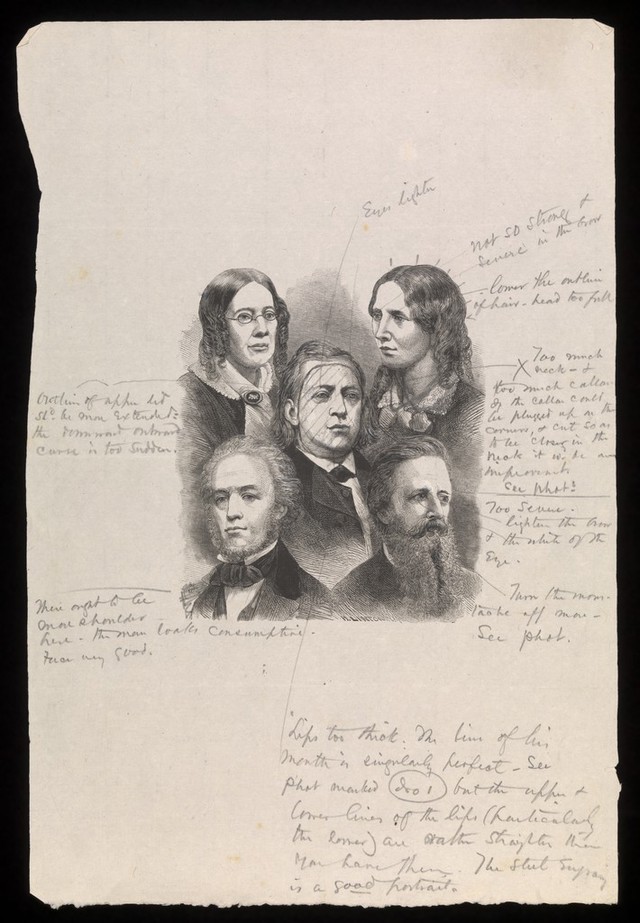 Eyes lighter
not so strong &
severe in the brow
lower the outline
of hair - head too full
Too much
neck - &
too much collar
If the collar could
be plugged up in the
corners, & cut so as
to be closer in the
neck it wd. be an
improvement
See phot:
Outline of upper
more extended
the downward outward
curve is too sudden.
Too severe.
lighten the brow
& the white of the
Eye.
Turn the mous-
tache off more -
See phot.
There ought to be
more shoulder
here - the man looks consumptive.
Face very good.
Lips too thick. The line of his
mouth is singularly perfect - See
phot marked but the upper &
lower lines of the lips (particularly
the lower) are rather straighter than
you have them. The steel engraving
is a good portrait.